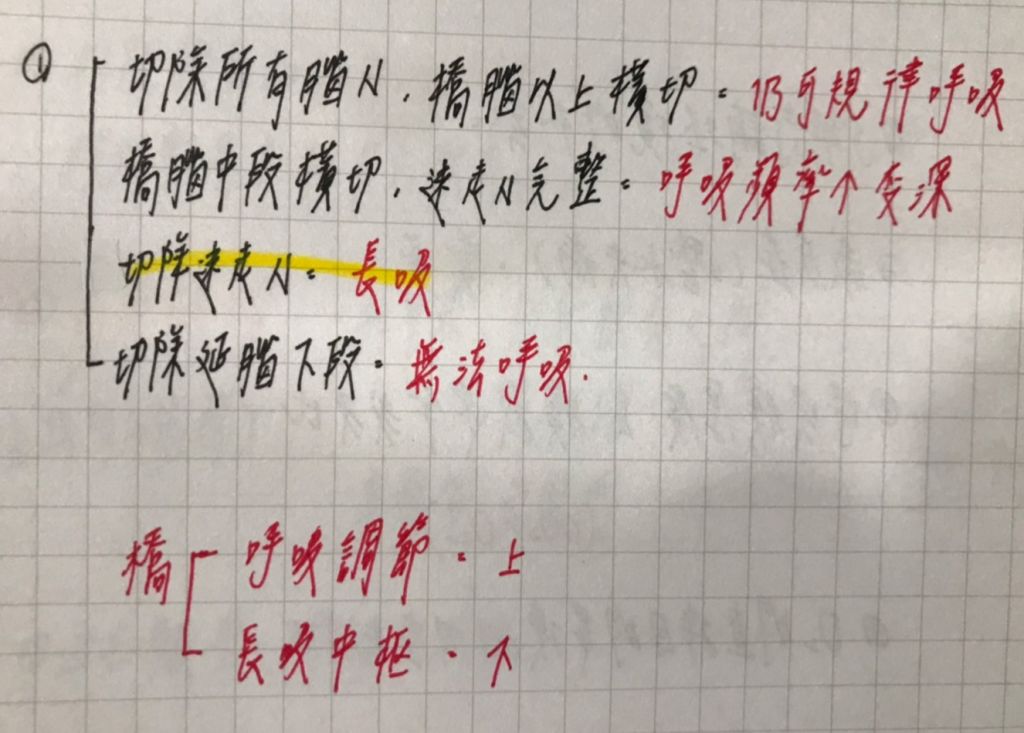 ① 切除所有腦N.橋腦以上橫切:仍可規律呼吸
橋腦中段橫切.迷走N完整:呼吸頻率↑變深
切除迷走N:長吸
切除延腦下段:無法呼吸.
橋 呼吸調節:上
長吸中枢:下